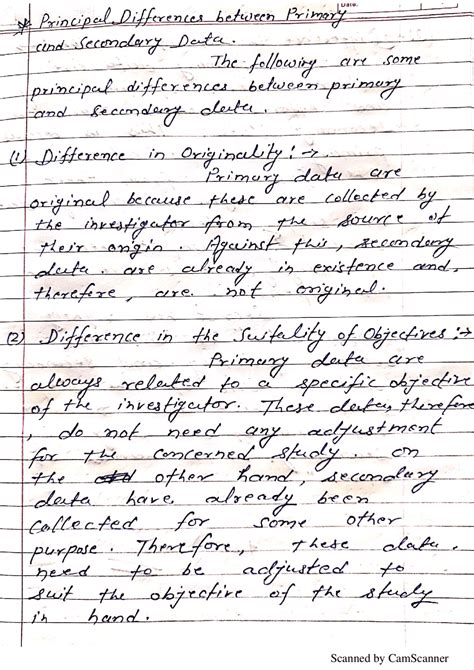 Date:
* Principal Differences between Primary
and Secondary Data.
The following are some
principal differences between primary
and secondary data.
(1) Difference in Originality :→
Primary data are
original because these are collected by
the investigator from the source of
their origin. Against this, secondary
data are already in existence and,
therefore, are not original.
(2) Difference in the Suitality of Objectives :→
Primary data are
always related to a specific objective
of the investigator. These data, therefore
, do not need any adjustment
for the concerned study. on
the other hand, secondary
data have already been
collected for some other
purpose. Therefore, these data
need to be adjusted to
suit the objective of the study
in hand.
Scanned by CamScanner